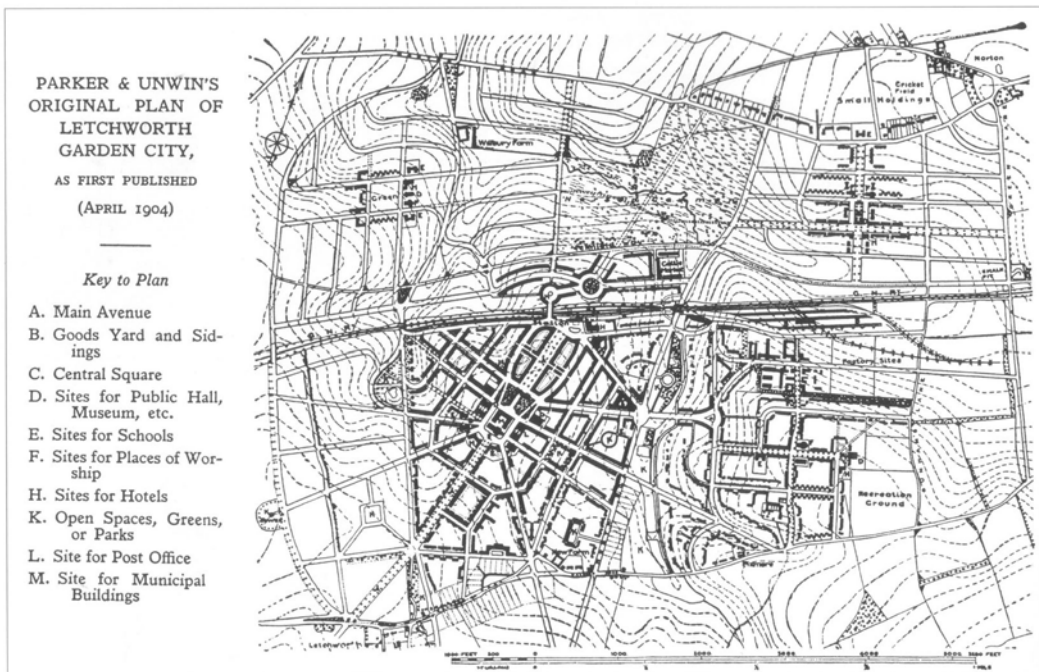 PARKER & UNWIN'S
ORIGINAL PLAN OF
LETCHWORTH
GARDEN CITY,
AS FIRST PUBLISHED
(APRIL 1904)
Key to Plan
A. Main Avenue
B. Goods Yard and Sid-
ings
C. Central Square
D. Sites for Public Hall,
Museum, etc.
E. Sites for Schools
F. Sites for Places of Wor-
ship
H. Sites for Hotels
K. Open Spaces, Greens,
or Parks
L. Site for Post Office
M. Site for Municipal
Buildings
Norton
Cricket
Field
Small Holdings
Wilbury Farm
Green
Station
Factory Sites
Recreation
Ground